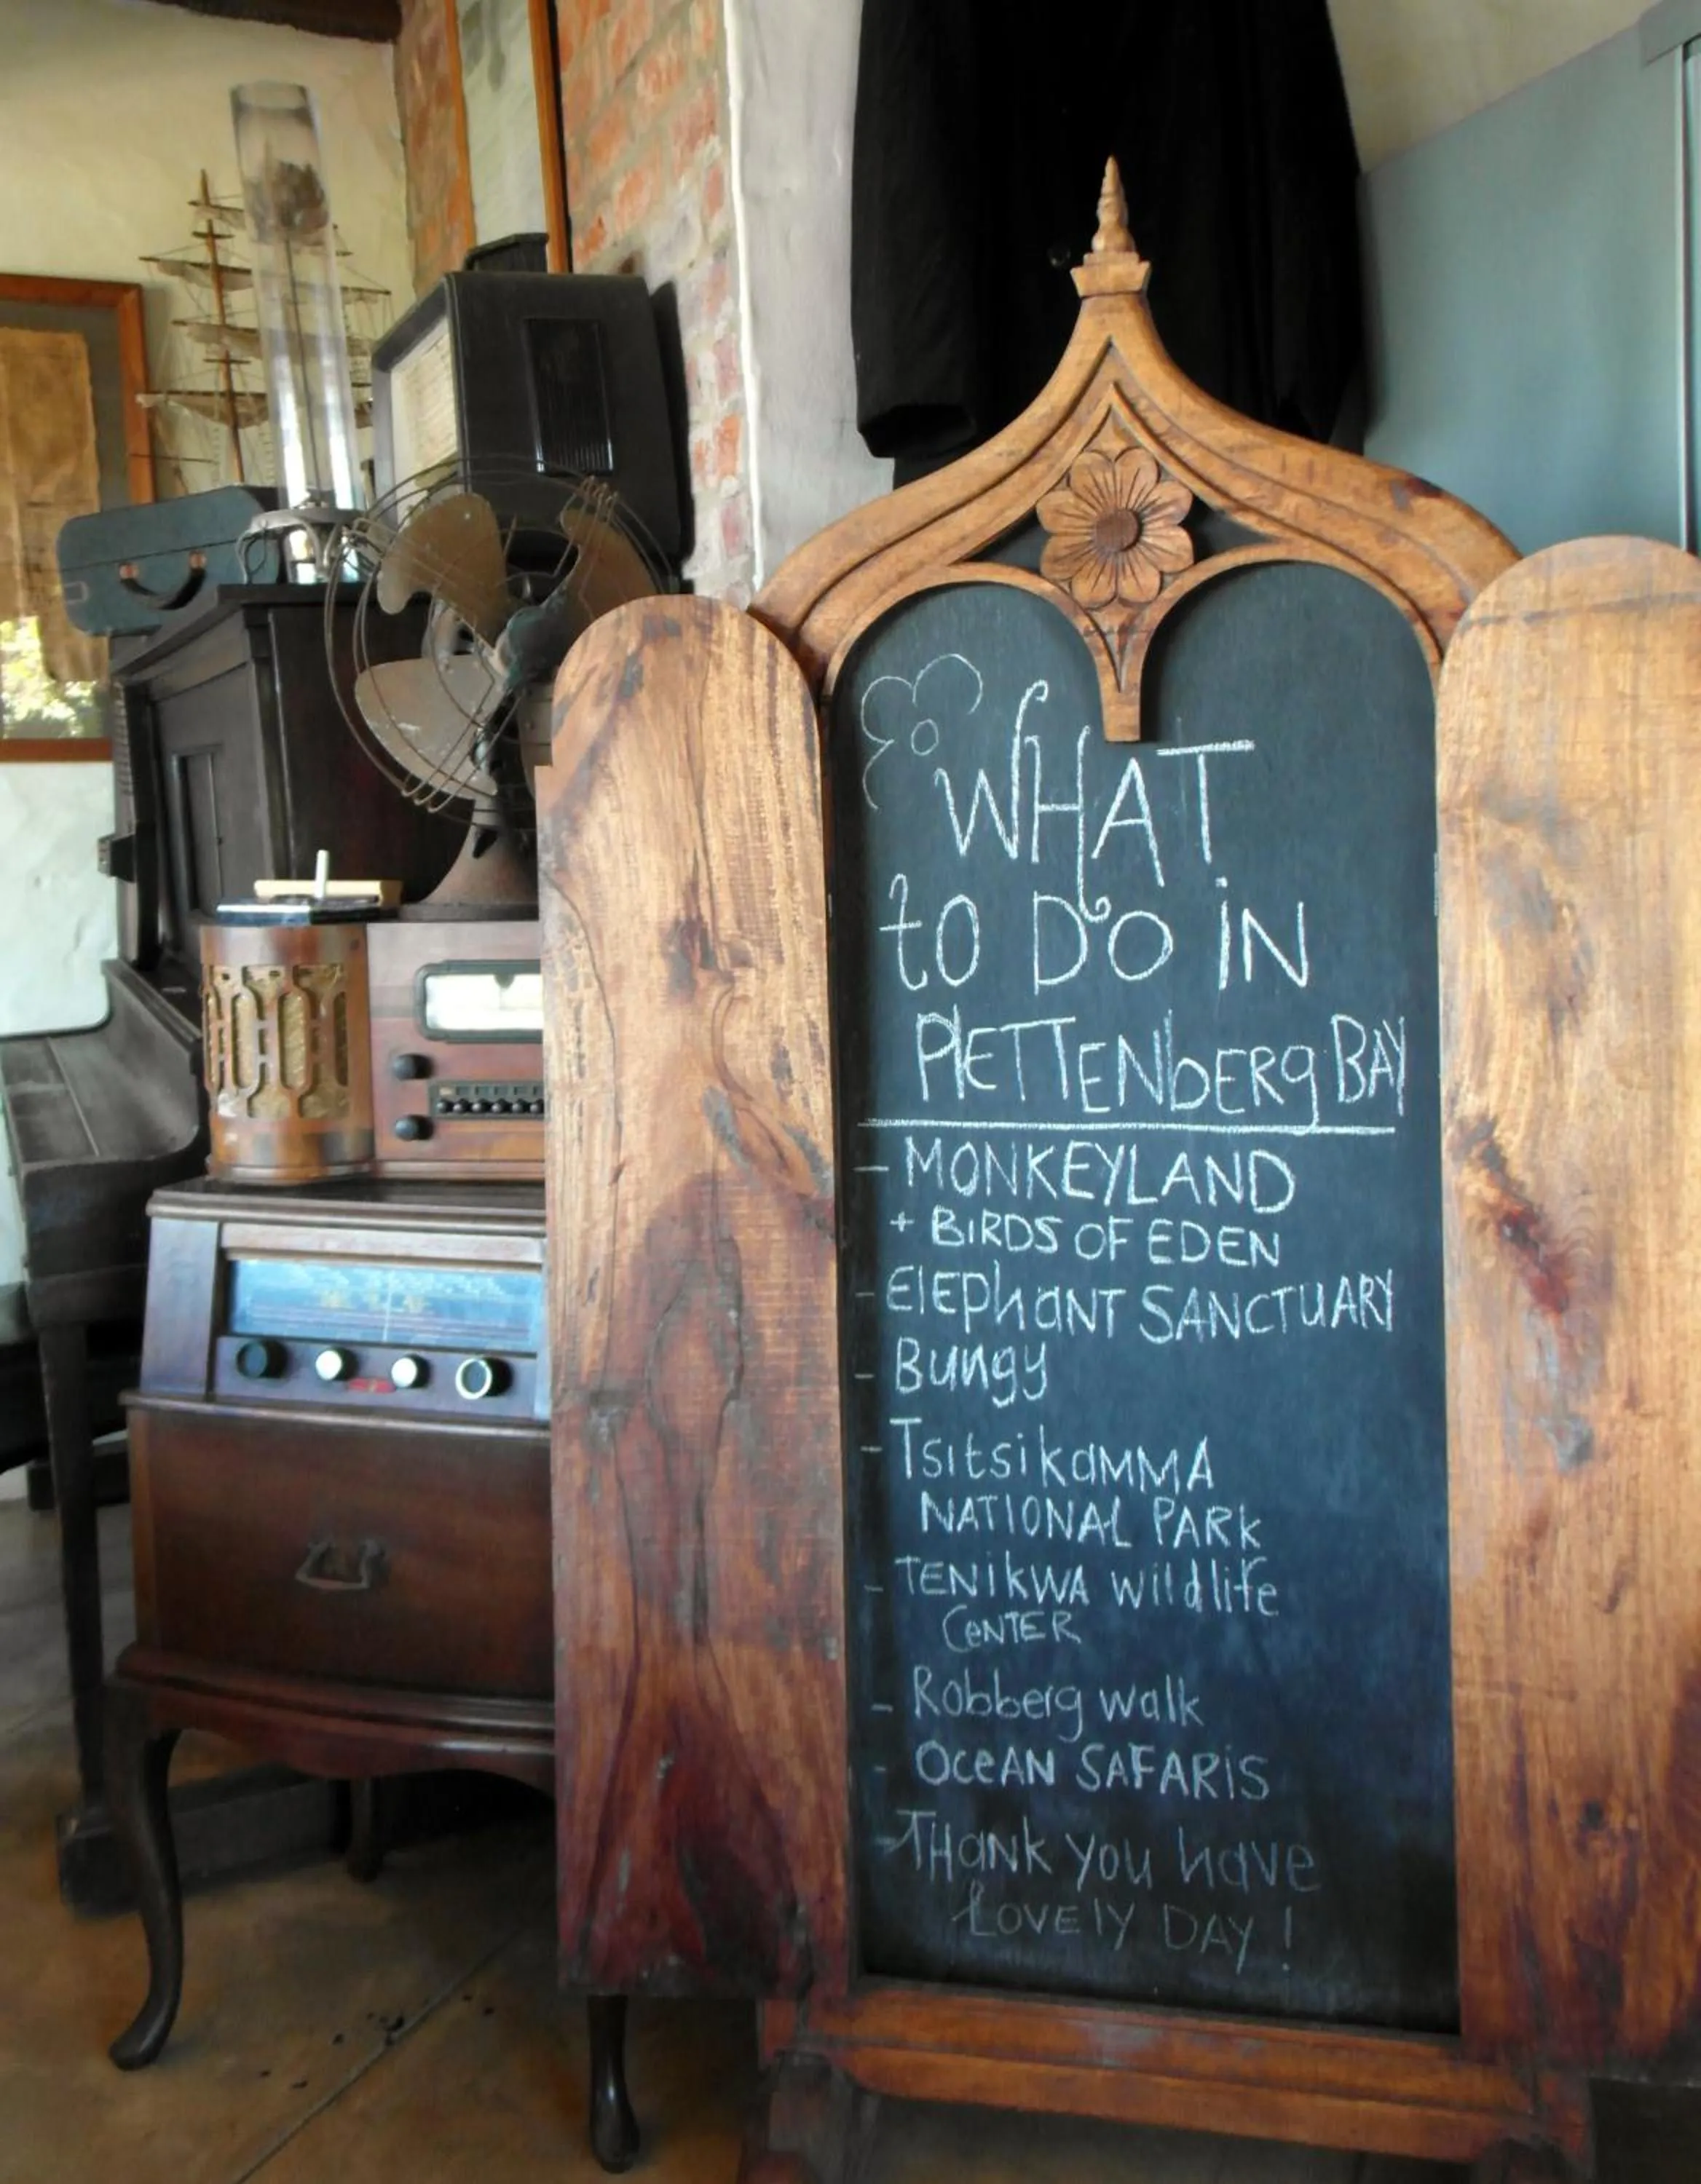 WHAT
to DO iN
PlETTENbERg BAY
- MONKEYLAND
+ BiRDS OF EDEN
- ElEphaNT SANCTUARY
- Bungy
- TsitsikaMMA
NATIONAL PARK
- TENikWA wildlife
CeNTER
- Robberg walk
- OceAN SAFARiS
- THaNK you have
LOVElY DAY !